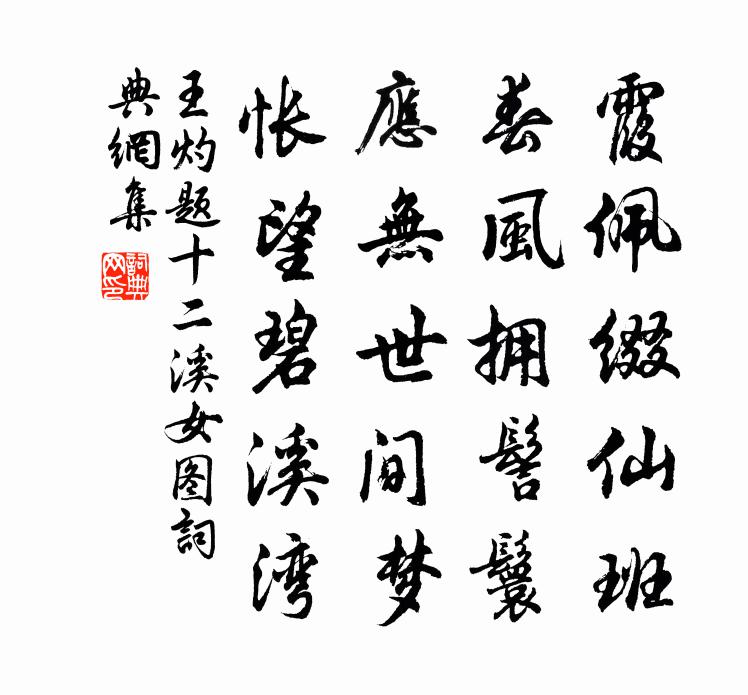 霞佩缀仙班
春風拥髻鬟
應無世间梦
怅望碧溪湾
王灼题十二溪女图詞
典網集
詞典網印